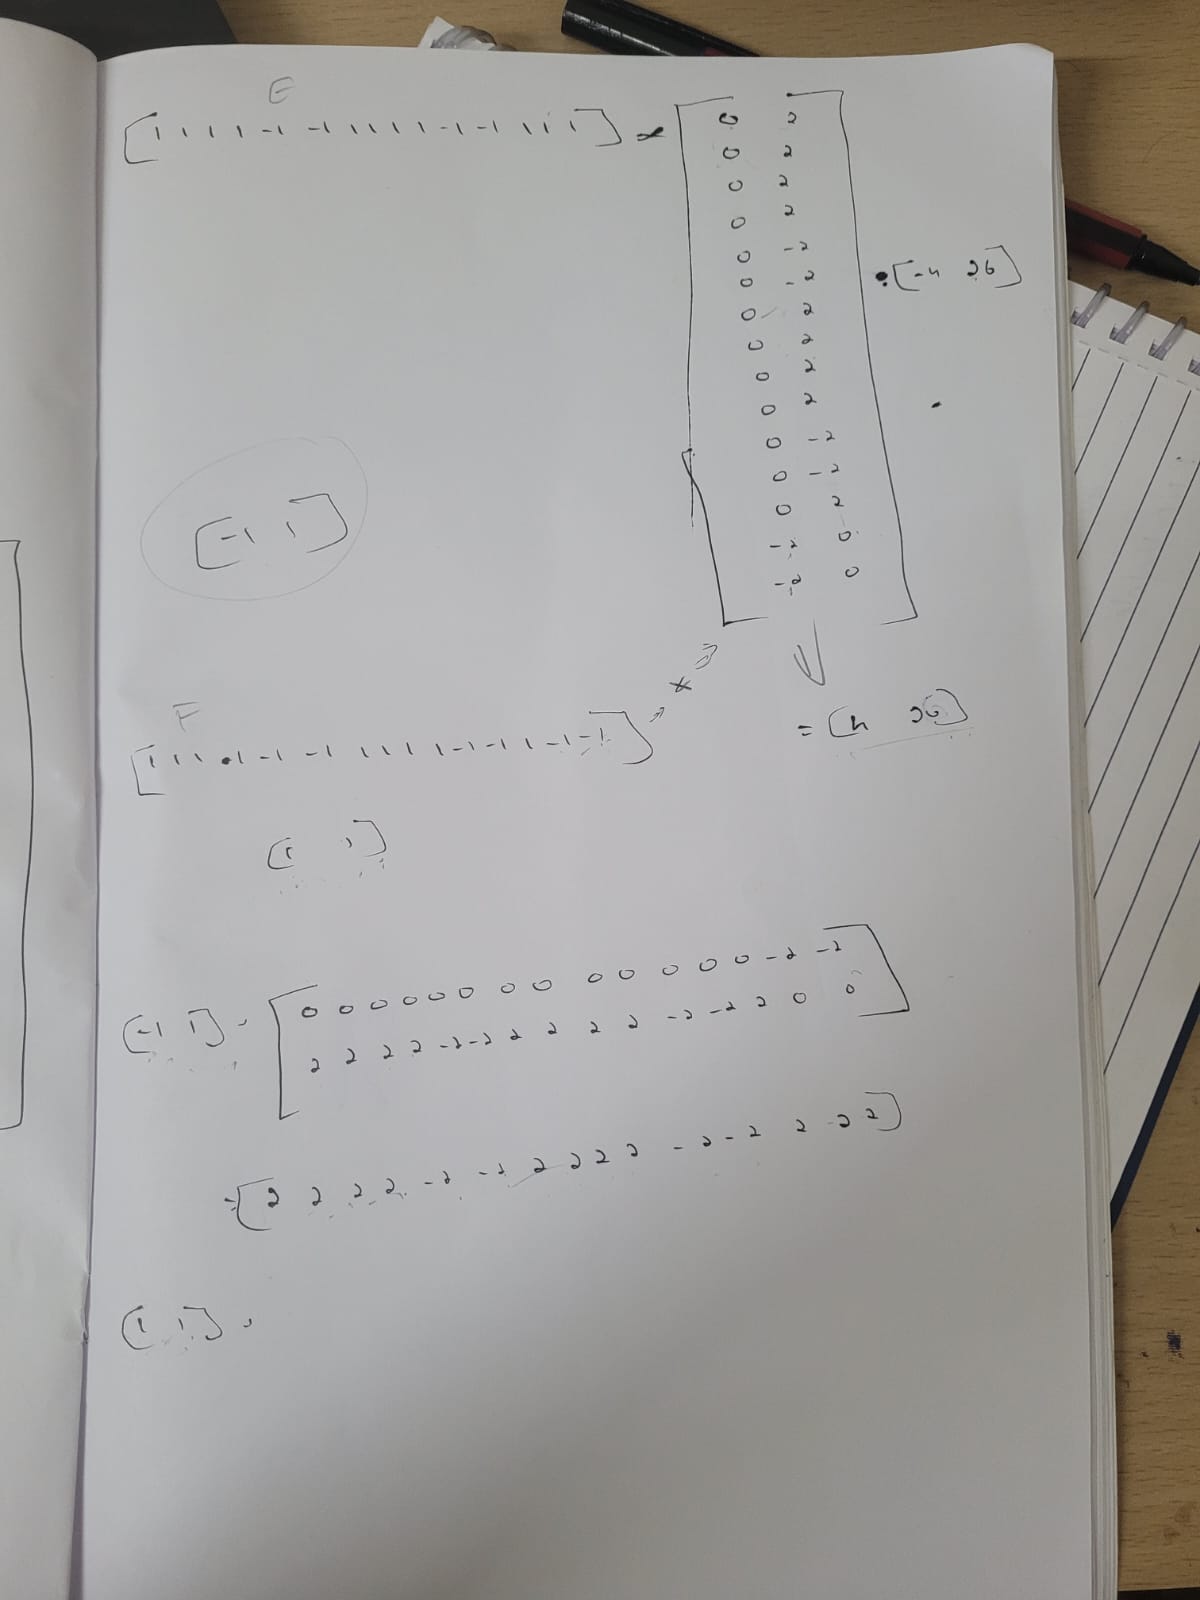 E
[1 1 1 1 -1 -1 1 1 1 1 -1 -1 1 1 1] *
0 2
0 2
0 2
0 2
0 -2
0 -2
0 2
0 2
0 2
0 2
0 -2
0 -2
0 2
-2 0
-2 0
[-4 26]
[-1 1]
F
[1 1 1 1 -1 -1 1 1 1 1 -1 -1 1 -1 -1] *
= [4 26]
[1 1]
[-1 1] .
[0 0 0 0 0 0 0 0 0 0 0 0 0 -2 -2
2 2 2 2 -2 -2 2 2 2 2 -2 -2 2 0 0]
= [2 2 2 2 -2 -2 2 2 2 2 -2 -2 2 2 2]
[1 1] .